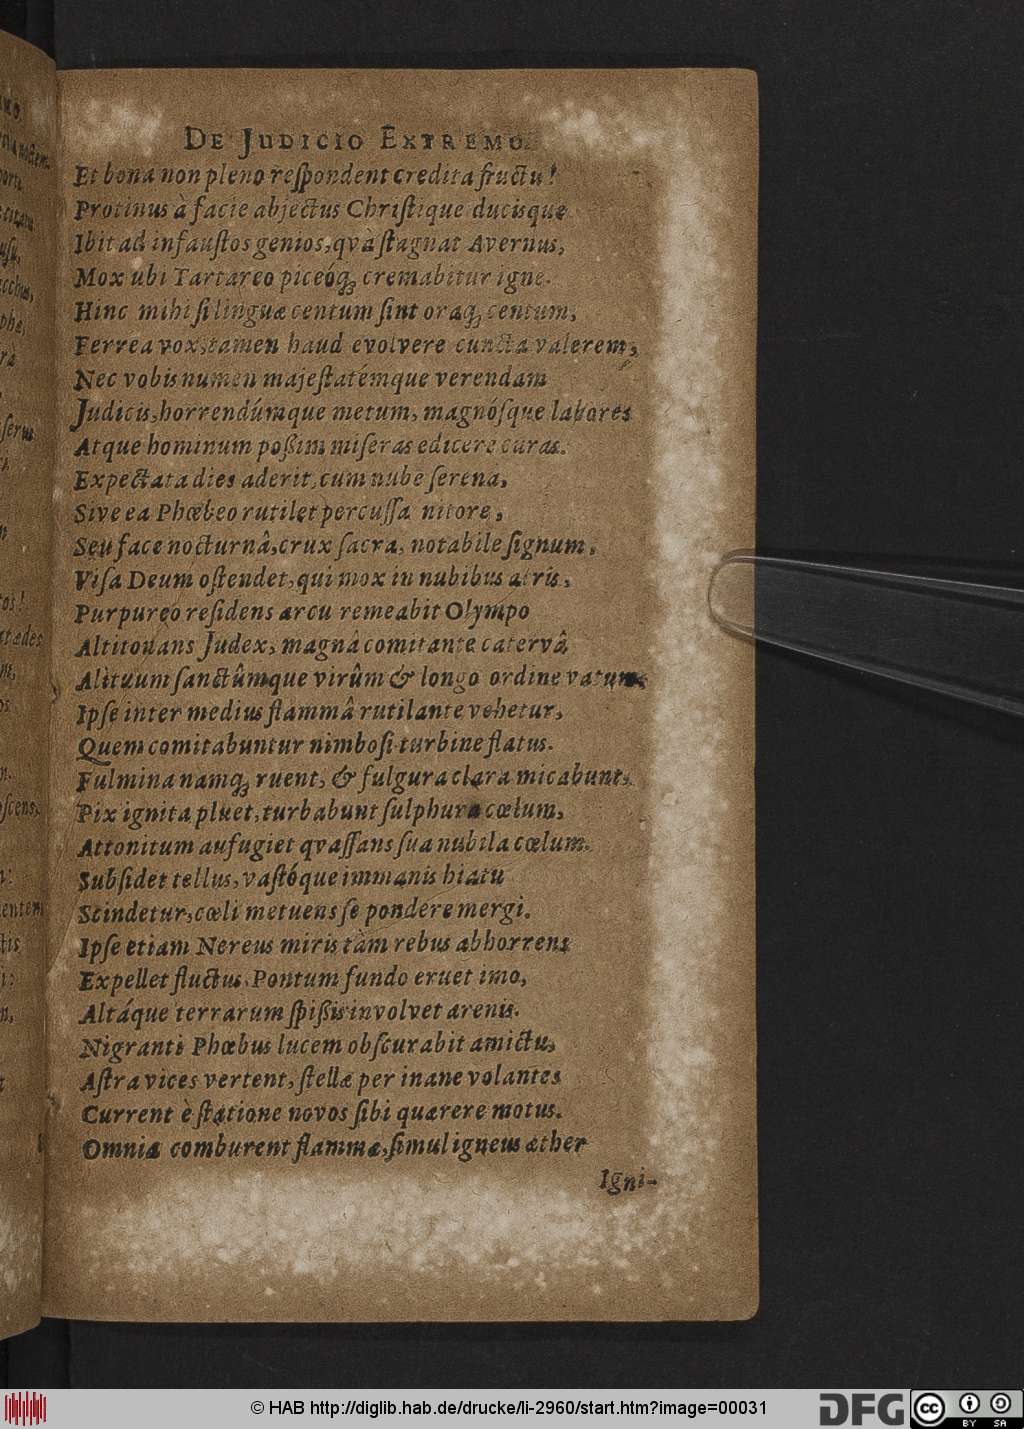 DE JUDICIO EXTREMO
Et bona non pleno reſpondent credita fructu!
Protinus à facie abjectus Chriſtique ducisque
Ibit ad infauſtos genios, qvà ſtagnat Avernus,
Mox ubi Tartareo piceóq; cremabitur igne.
Hinc mihi ſi linguæ centum ſint oraq; centum,
Ferrea vox, tamen haud evolvere cuncta valerem,
Nec vobis numen majeſtatémque verendam
Judicis, horrendúmque metum, magnóſque labores
Atque hominum poßim miſeras edicere curas.
Expectata dies aderit, cum nube ſerena,
Sive ea Phœbeo rutilet percuſſa nitore,
Seu face nocturnâ, crux ſacra, notabile ſignum,
Viſa Deum oſtendet, qui mox in nubibus atris,
Purpureo reſidens arcu remeabit Olympo
Altitonans Judex, magnâ comitante catervâ
Alituum ſanctûmque virûm & longo ordine vatum.
Ipſe inter medius flammâ rutilante vehetur,
Quem comitabuntur nimboſi turbine flatus.
Fulmina namq; ruent, & fulgura clara micabunt,
Pix ignita pluet, turbabunt ſulphura cœlum,
Attonitum aufugiet qvaſſans ſua nubila cœlum.
Subſidet tellus, vaſtóque immanis hiatu
Scindetur, cœli metuens ſe pondere mergi.
Ipſe etiam Nereus miris tàm rebus abhorrens
Expellet fluctus, Pontum fundo eruet imo,
Altáque terrarum ſpißis involvet arenis.
Nigranti Phœbus lucem obſcurabit amictu,
Aſtra vices vertent, ſtellæ per inane volantes
Current è ſtatione novos ſibi quærere motus.
Omnia comburent flammæ, ſimul igneus æther
Igni-
© HAB http://diglib.hab.de/drucke/li-2960/start.htm?image=00031
DFG
cc
BY SA